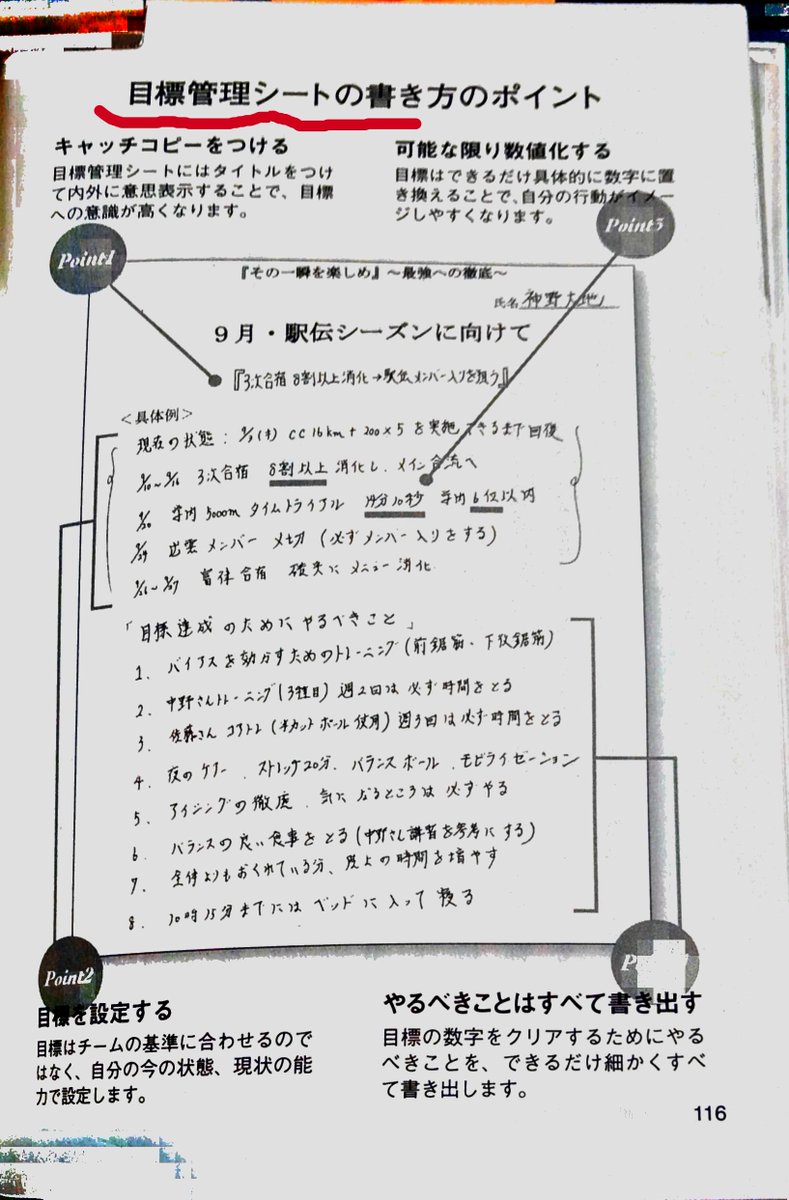 目標管理シートの書き方のポイント
キャッチコピーをつける
目標管理シートにはタイトルをつけ
て内外に意思表示することで、目標
への意識が高くなります。
可能な限り数値化する
目標はできるだけ具体的に数字に置
き換えることで、自分の行動がイメー
ジしやすくなります。
Point1
Point3
『その一瞬を楽しめ』〜最強への徹底〜
氏名 神野大地
9月・駅伝シーズンに向けて
『3次合宿8割以上消化→駅伝メンバー入りを狙う』
<具体例>
現在の状態: CC 16km + 200×5 を実施できるまで回復
3次合宿 8割以上 消化し、メイン合流へ
学内 5000m タイムトライアル 14分10秒 学内6位以内
出雲メンバー 〆切 (必ずメンバー入りをする)
合宿 確実にメニュー消化
「目標達成のためにやるべきこと」
1. を効かすためのトレーニング(前鋸筋・下後鋸筋)
2. 中野さんトレーニング(3種目)週2回は必ず時間をとる
3. 佐藤さん コアトレ(半カットボール使用)週3回は必ず時間をとる
4. 夜のケアー ストレッチ20分、バランスボール、モビライゼーション
5. アイシングの徹底、気になるところは必ずやる
6. バランスの良い食事をとる(中野さん講習を参考にする)
7. 全体よりもおくれている分、陸上の時間を増やす
8. 10時15分までにはベッドに入って寝る
Point2
目標を設定する
目標はチームの基準に合わせるので
はなく、自分の今の状態、現状の能
力で設定します。
やるべきことはすべて書き出す
目標の数字をクリアするためにやる
べきことを、できるだけ細かくすべ
て書き出します。
116